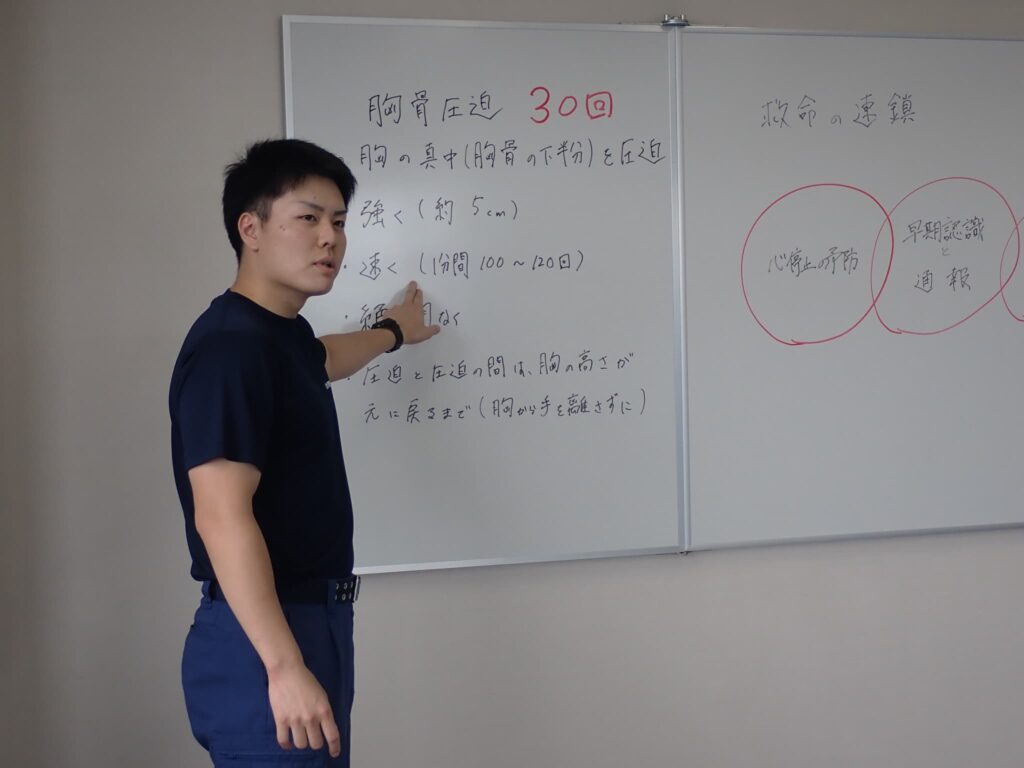 胸骨圧迫 30回
・胸の真中(胸骨の下半分)を圧迫
強く(約 5cm)
・速く (1分間 100～120回)
・絶 間なく
・圧迫と圧迫の間は、胸の高さが
元に戻るまで(胸から手を離さずに)
救命の連鎖
心停止の予防
早期認識
と
通報